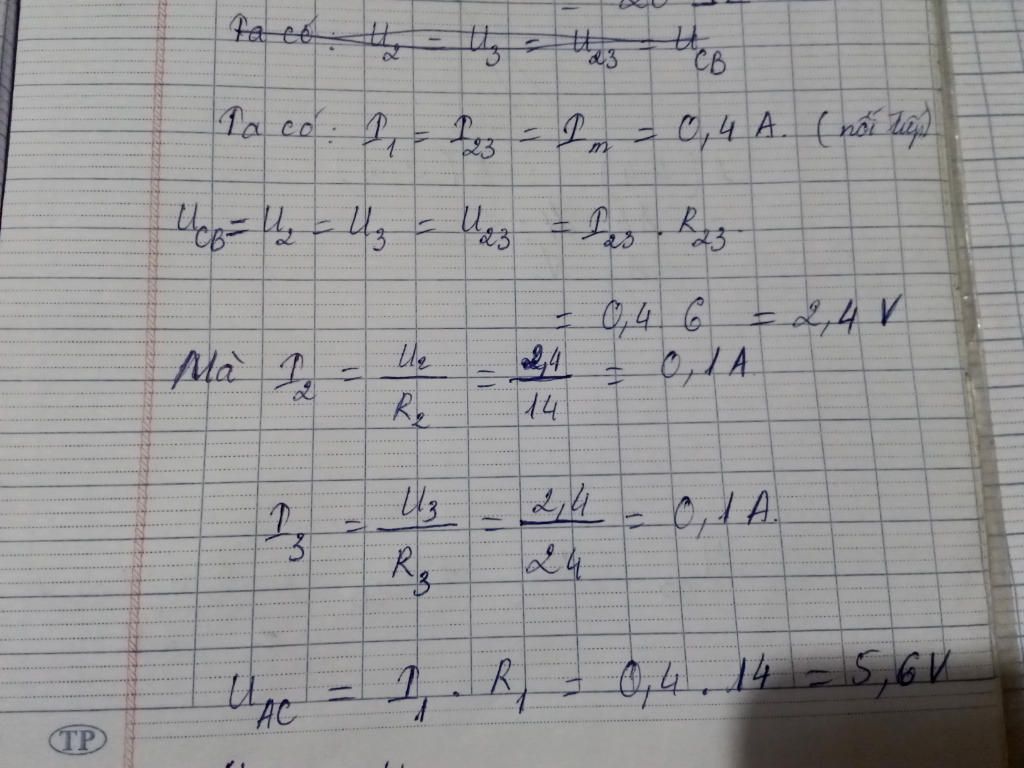 = 20
Ta có: U₂ = U₃ = U₂₃ = U_CB
Ta có: I₁ = I₂₃ = I_m = 0,4 A. (nối tiếp)
U_CB = U₂ = U₃ = U₂₃ = I₂₃ . R₂₃
= 0,4 6 = 2,4 V
Mà I₂ = U₂/R₂ = 2,4/14 = 0,1 A
I₃ = U₃/R₃ = 2,4/24 = 0,1 A.
U_AC = I₁ . R₁ = 0,4 . 14 = 5,6 V
TP